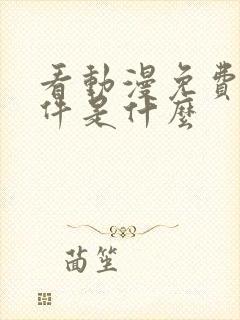 看動漫免費
件是什麼
茵笙